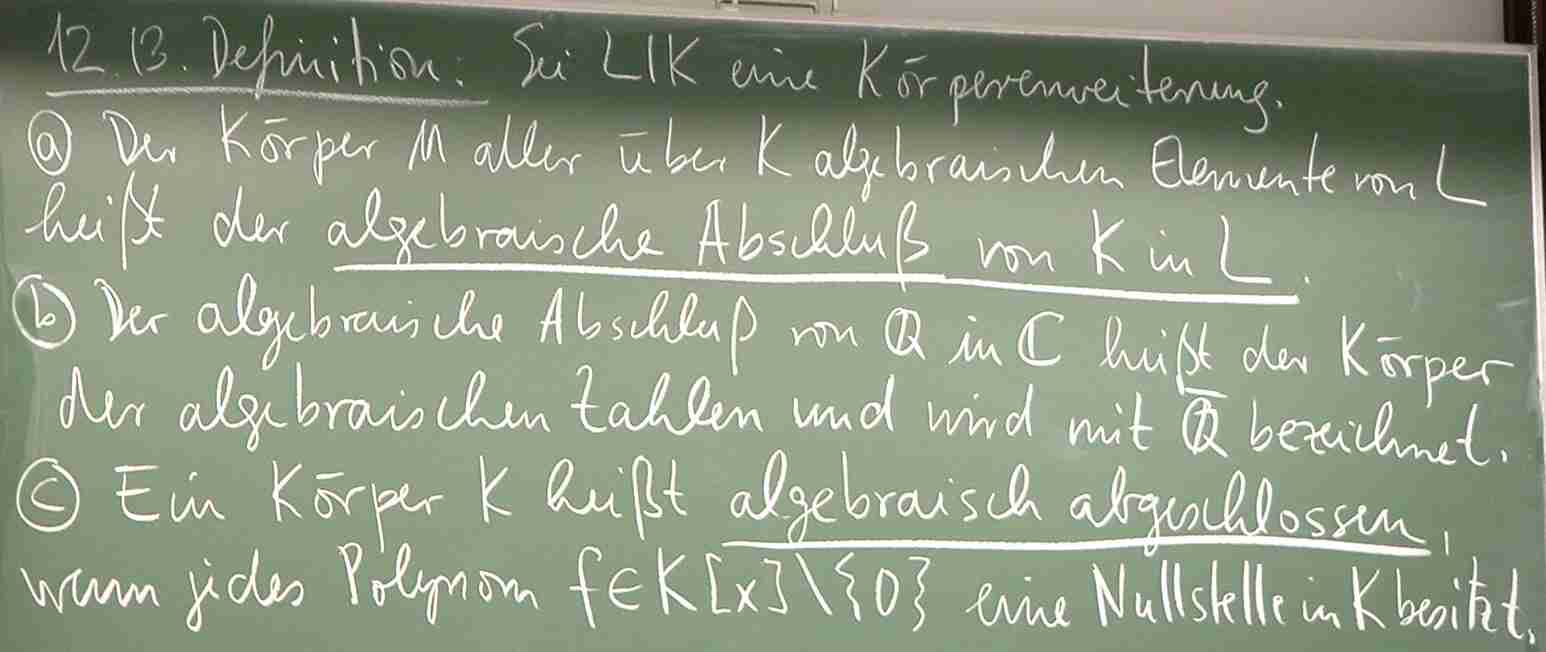 12.13. Definition: Sei L|K eine Körpererweiterung.
(a) Der Körper M aller über K algebraischen Elemente von L
heißt der algebraische Abschluß von K in L.
(b) Der algebraische Abschluß von ℚ in ℂ heißt der Körper
der algebraischen Zahlen und wird mit ℚ̄ bezeichnet.
(c) Ein Körper K heißt algebraisch abgeschlossen,
wenn jedes Polynom f∈K[x]\{0} eine Nullstelle in K besitzt.